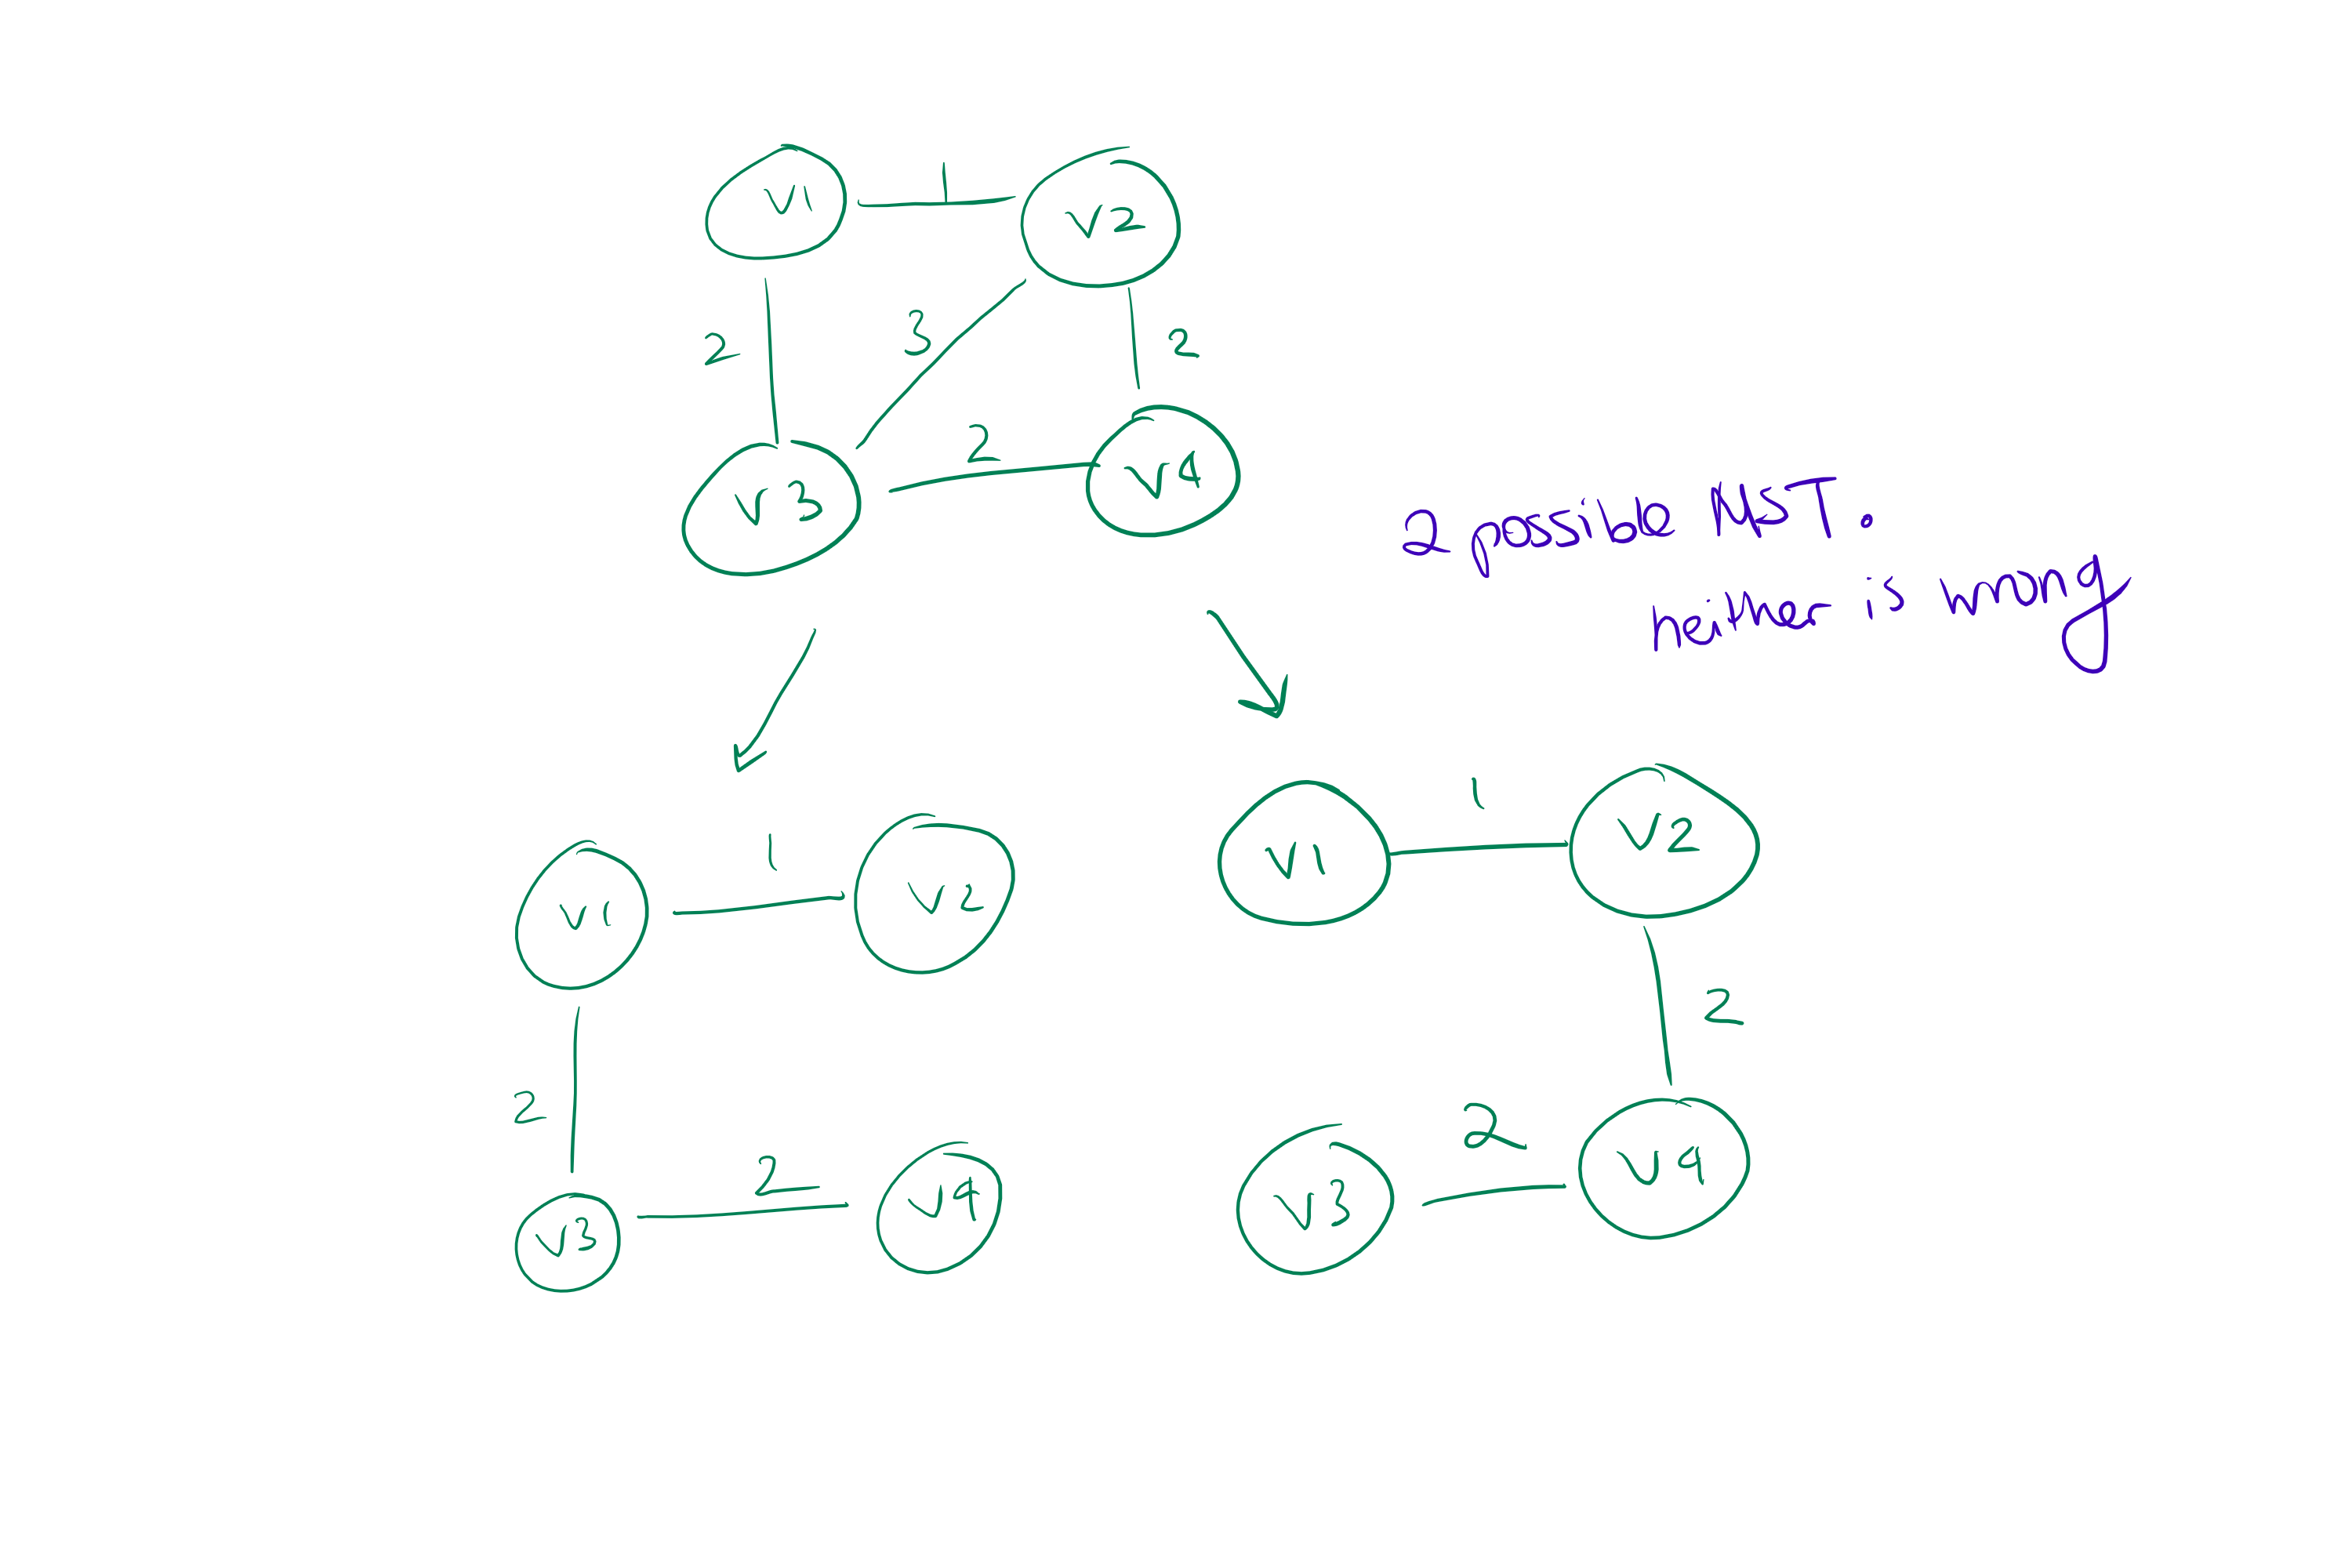 V1
1
V2
2
3
2
V3
2
V4
2 possible MST.
neither is wrong
V1
1
V2
2
V3
2
V4
V1
1
V2
2
V3
2
V4